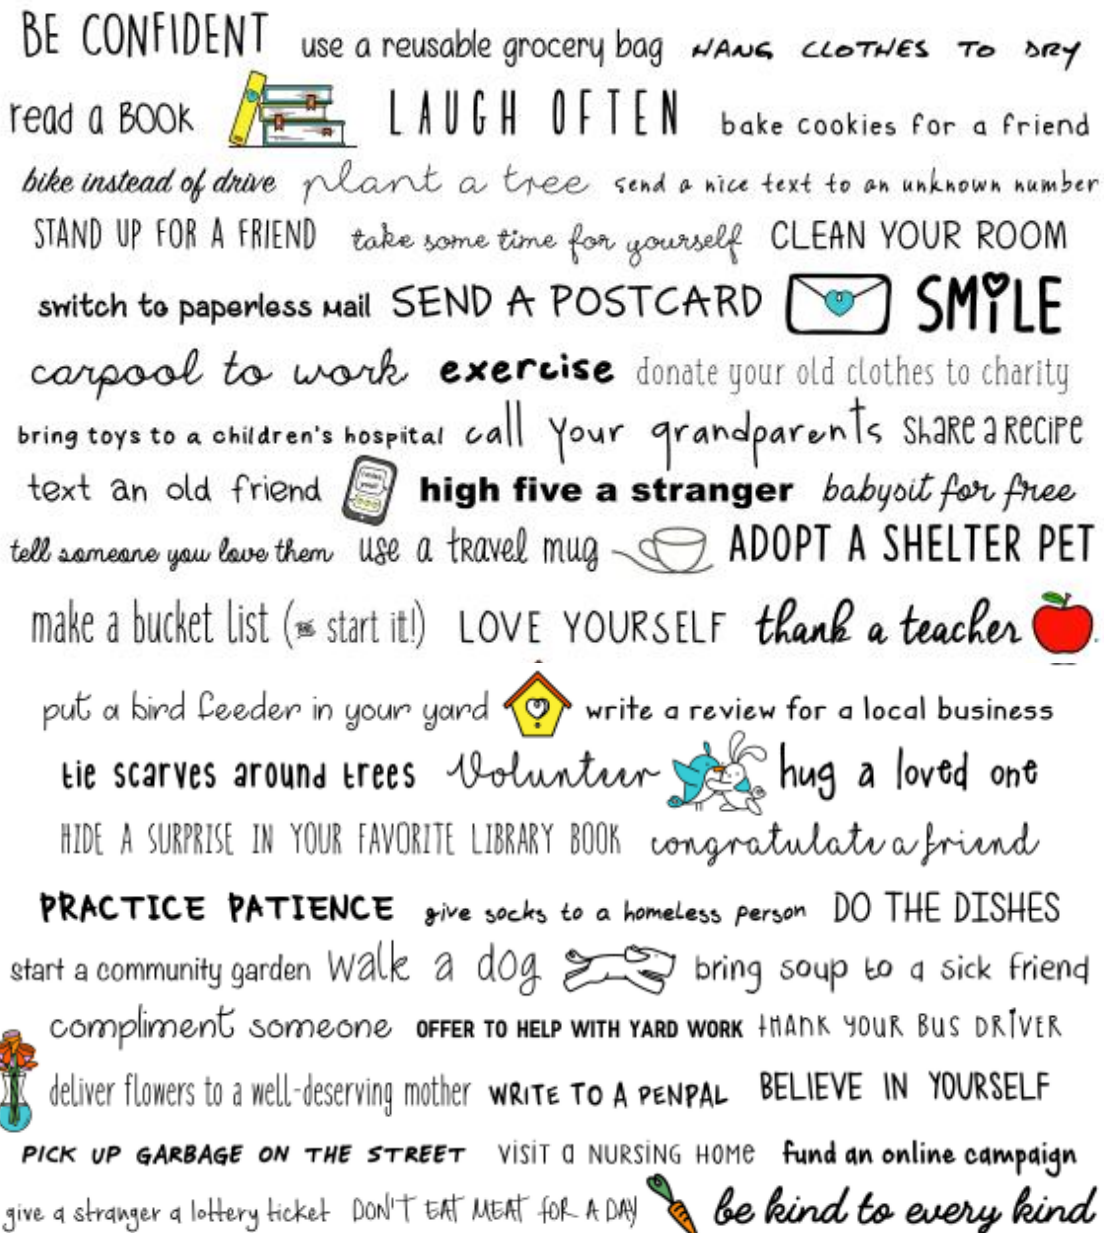 BE CONFIDENT use a reusable grocery bag HANG CLOTHES TO DRY
read a BOOK LAUGH OFTEN bake cookies for a friend
bike instead of drive plant a tree send a nice text to an unknown number
STAND UP FOR A FRIEND take some time for yourself CLEAN YOUR ROOM
switch to paperless mail SEND A POSTCARD SMiLE
carpool to work exercise donate your old clothes to charity
bring toys to a children's hospital call your grandparents SHARE a RECIPE
text an old friend high five a stranger babysit for free
tell someone you love them use a travel mug ADOPT A SHELTER PET
make a bucket list ( start it!) LOVE YOURSELF thank a teacher
put a bird feeder in your yard write a review for a local business
tie scarves around trees Volunteer hug a loved one
HIDE A SURPRISE IN YOUR FAVORITE LIBRARY BOOK congratulate a friend
PRACTICE PATIENCE give socks to a homeless person DO THE DISHES
start a community garden walk a dog bring soup to a sick friend
compliment someone OFFER TO HELP WITH YARD WORK tHANK YOUR BUS DRiVER
deliver flowers to a well-deserving mother WRITE TO A PENPAL BELIEVE IN YOURSELF
PICK UP GARBAGE ON THE STREET VISIT a NURSING HOME fund an online campaign
give a stranger a lottery ticket DON'T EAT MEAT FOR A DAY be kind to every kind